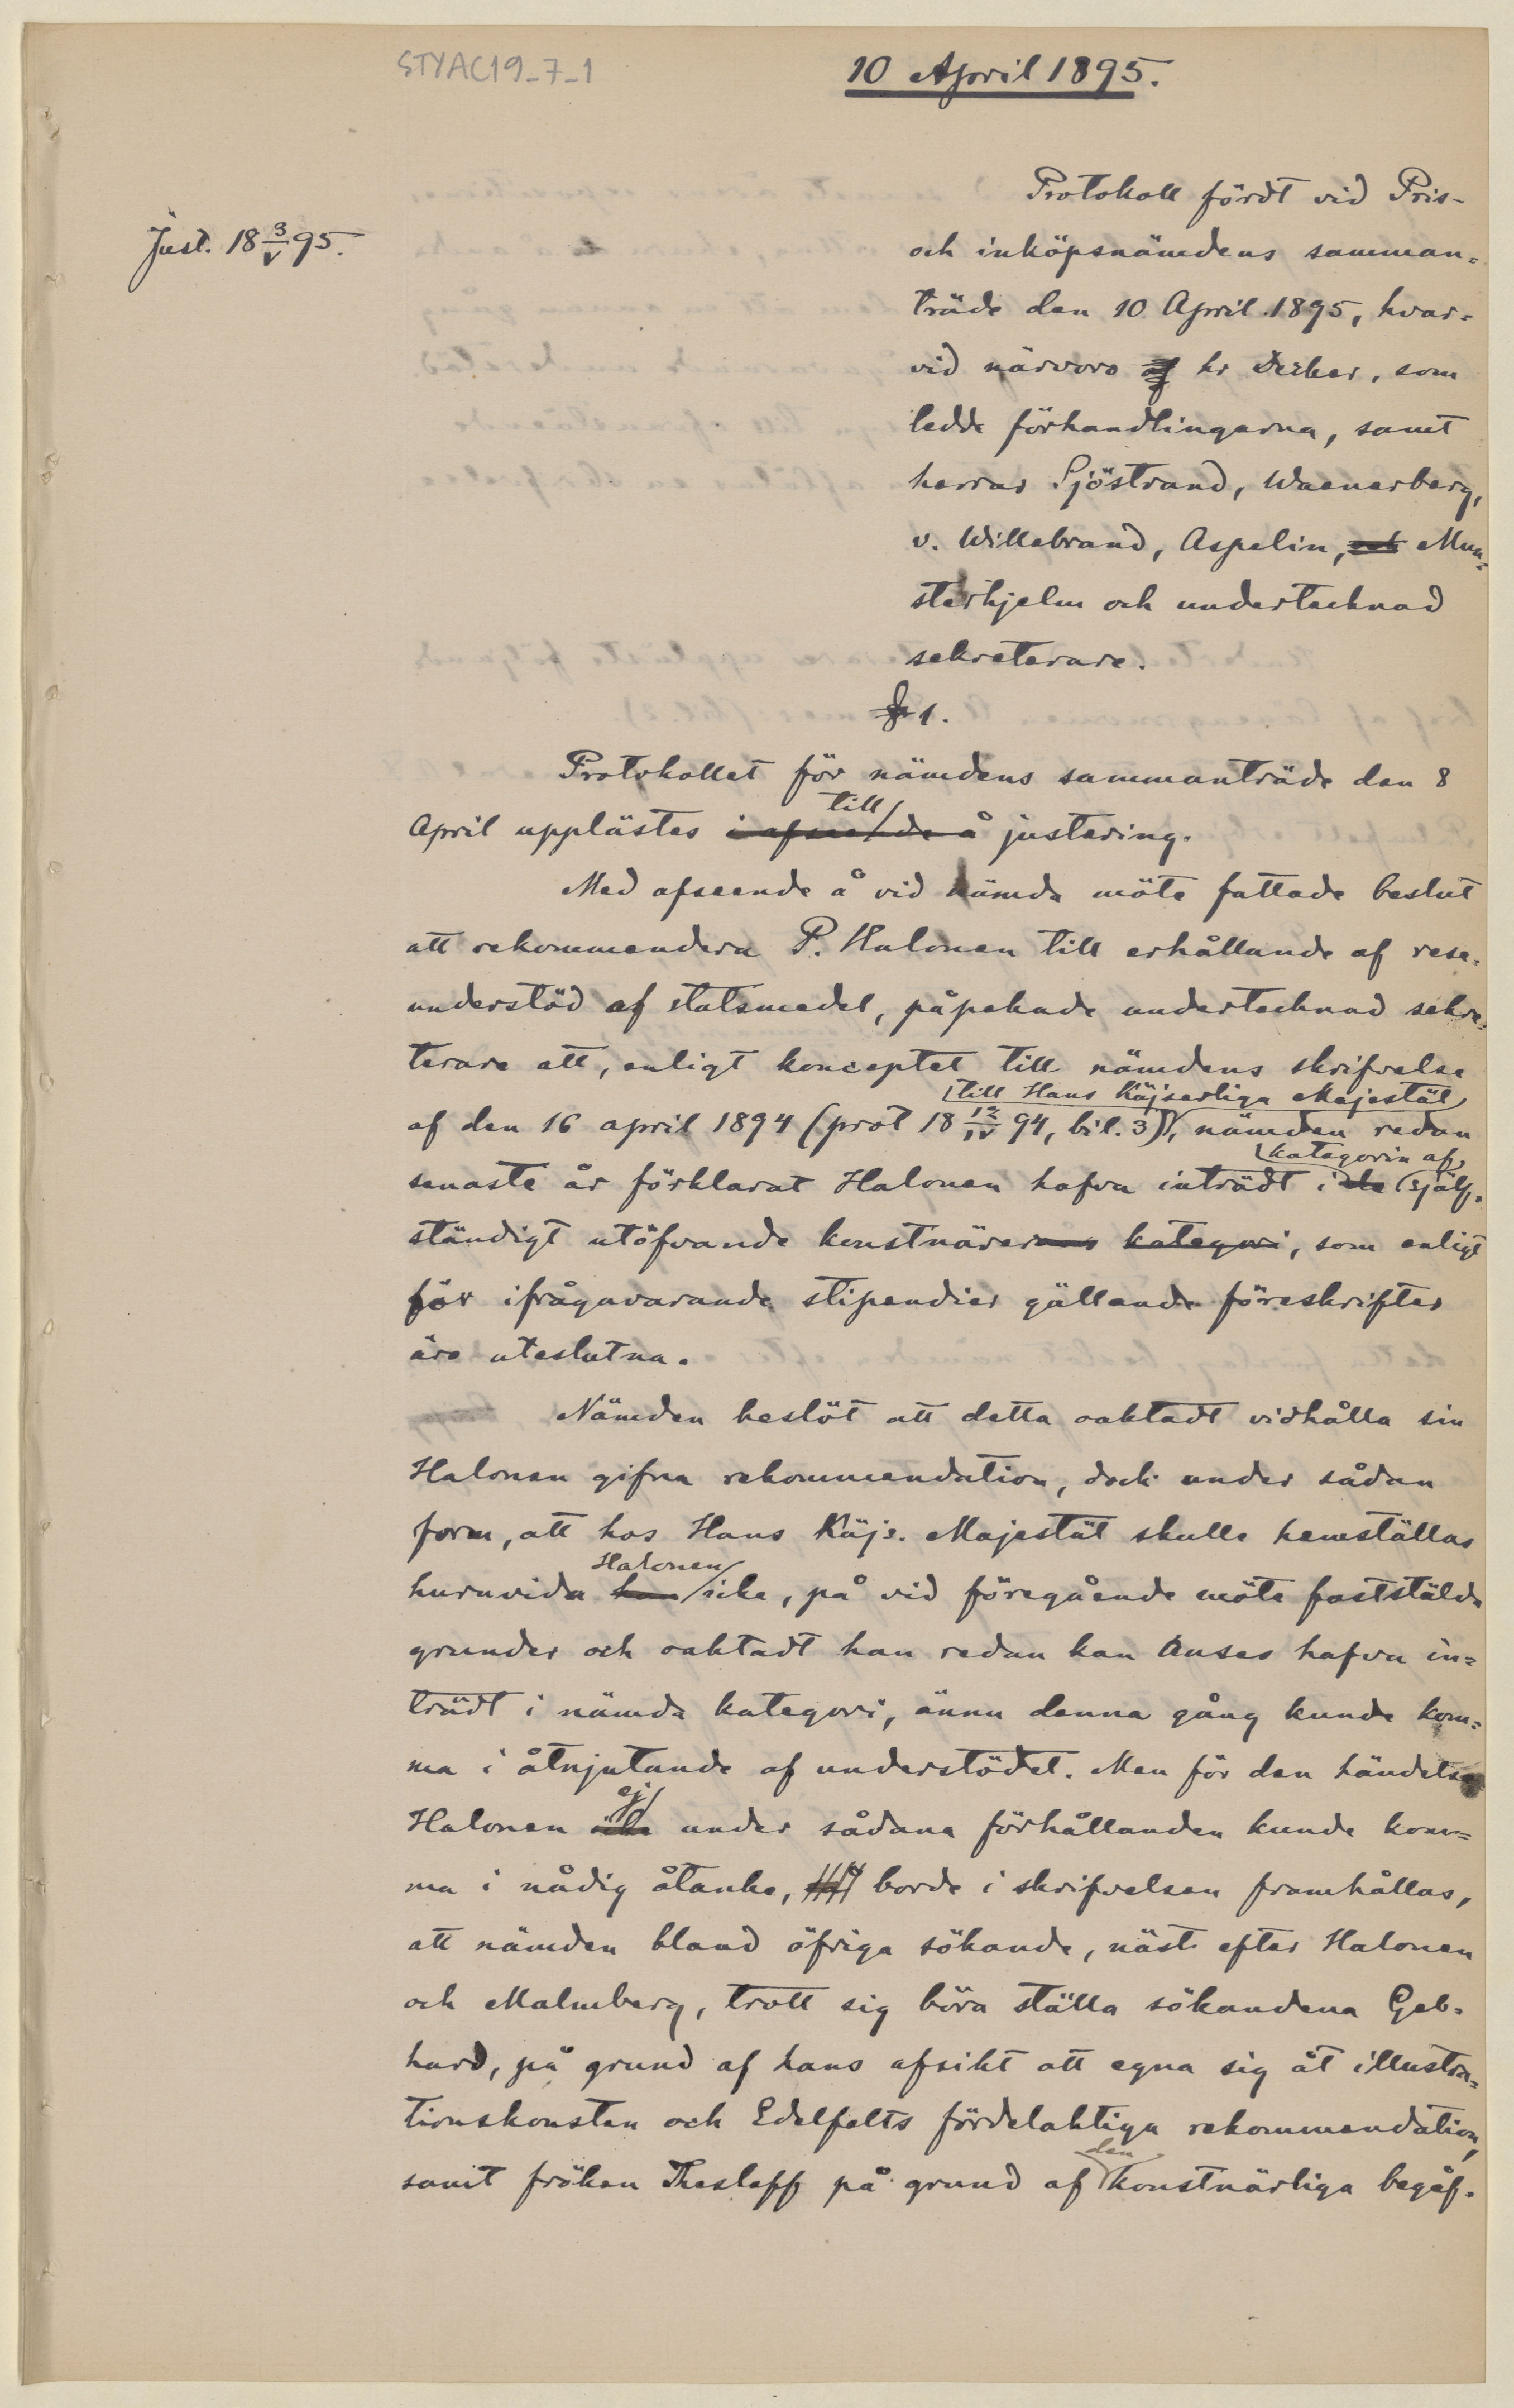 STYAC19_7_1
10 April 1895.
Just. 18 3/V 95.
Protokoll fördt vid Pris-
och inköpsnämdens samman-
träde den 10 April 1895, hvar-
vid närvoro af hr Decker, som
ledde förhandlingarna, samt
herrar Sjöstrand, Waenerberg,
v. Willebrand, Aspelin, och Mun-
sterhjelm och undertecknad
sekreterare.
§ 1.
Protokollet för nämdens sammanträde den 8
till
April upplästes i afseende å justering.
Med afseende å vid nämda möte fattade beslut
att rekommendera P. Halonen till erhållande af rese-
understöd af statsmedel, påpekade undertecknad sekre-
terare att, enligt konceptet till nämdens skrifvelse
till Hans Kejserliga Majestät
af den 16 april 1894 (prot 18 12/IV 94, bil. 3), nämden redan
kategorin af
senaste år förklarat Halonen hafva inträdt i de själf-
ständigt utöfvande konstnärernas kategori, som enligt
för ifrågavarande stipendier gällande föreskrifter
äro uteslutna.
Nämden beslöt att detta oaktadt vidhålla sin
Halonen gifna rekommendation, dock under sådan
form, att hos Hans Kejs. Majestät skulle hemställas
Halonen
huruvida han icke, på vid föregående möte fastställda
grunder och oaktadt han redan kan anses hafva in-
trädt i nämda kategori, ännu denna gång kunde kom-
ma i åtnjutande af understödet. Men för den händelse
ej
Halonen icke under sådana förhållanden kunde kom-
ma i nådig åtanke, borde i skrifvelsen framhållas,
att nämden bland öfriga sökande, näst efter Halonen
och Malmberg, trott sig böra ställa sökandena Geb-
hard, på grund af hans afsikt att egna sig åt illustra-
tionskonsten och Edelfelts fördelaktiga rekommendation,
den
samt fröken Thesleff på grund af konstnärliga begåf-